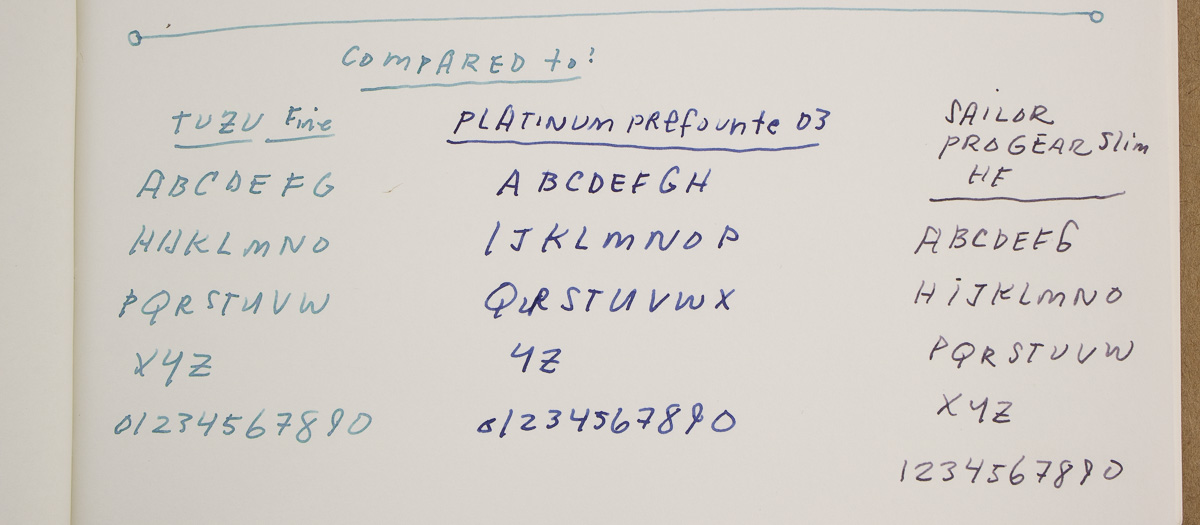 COMPARED to:
TUZU Fine
ABCDEFG
HIJKLMNO
PQRSTUVW
XYZ
01234567890
PLATINUM PREfounte 03
ABCDEFGH
IJKLMNOP
QRSTUVWX
YZ
01234567890
SAILOR
PROGEAR Slim
HF
ABCDEFG
HIJKLMNO
PQRSTUVW
XYZ
1234567890